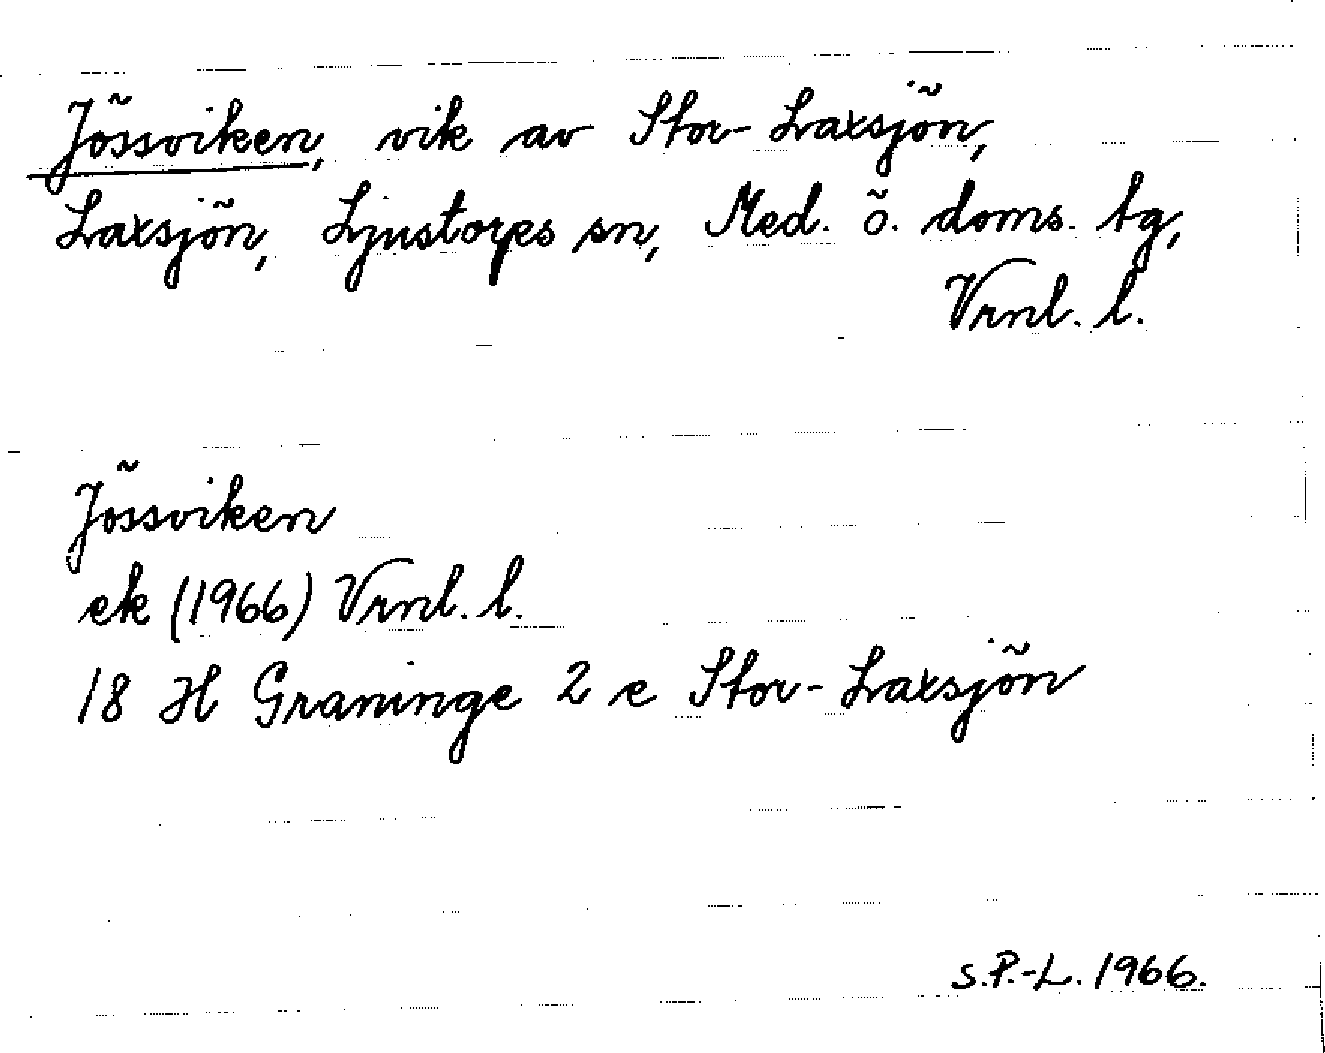 Jössviken, vik av Stor-Laxsjön,
Laxsjön, Ljustorps sn, Med. ö. doms. tg,
Vrnl. l.
Jössviken
ek (1966) Vrnl. l.
18 H Graninge 2 e Stor-Laxsjön
S.P.-L. 1966.